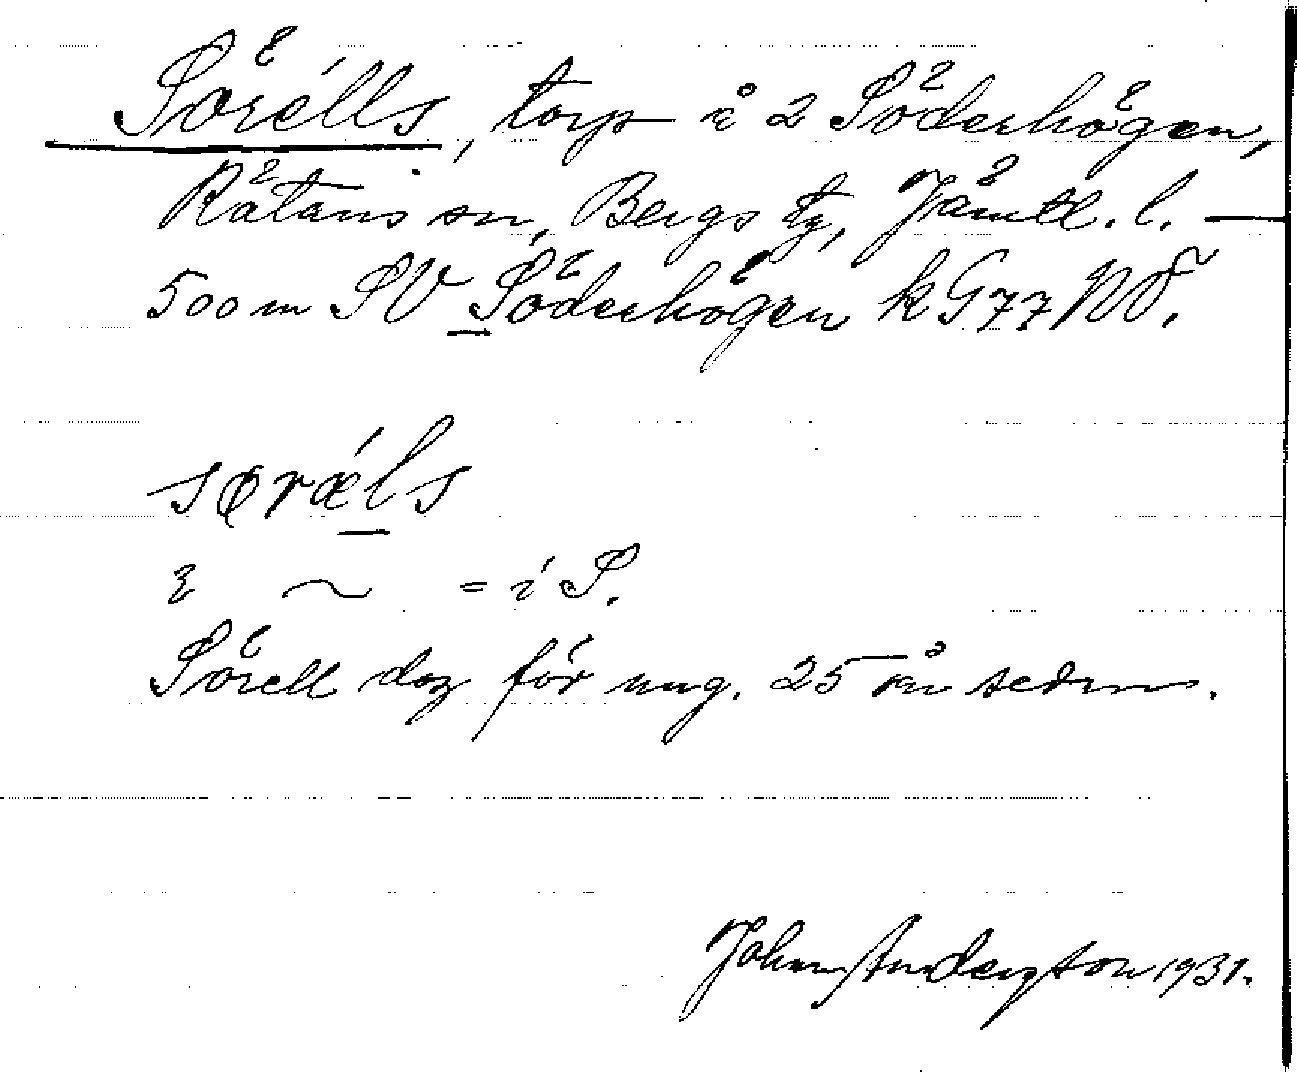 Sörélls, torp i 2 Söderhögen,
Rätans sn, Bergs tg, Jämtl. l. —
500 m SV Söderhögen k G77 NV.
sørǽls
i ~ = i S.
Sörell dog för ung. 25 år sedan.
John Anderson 1931.